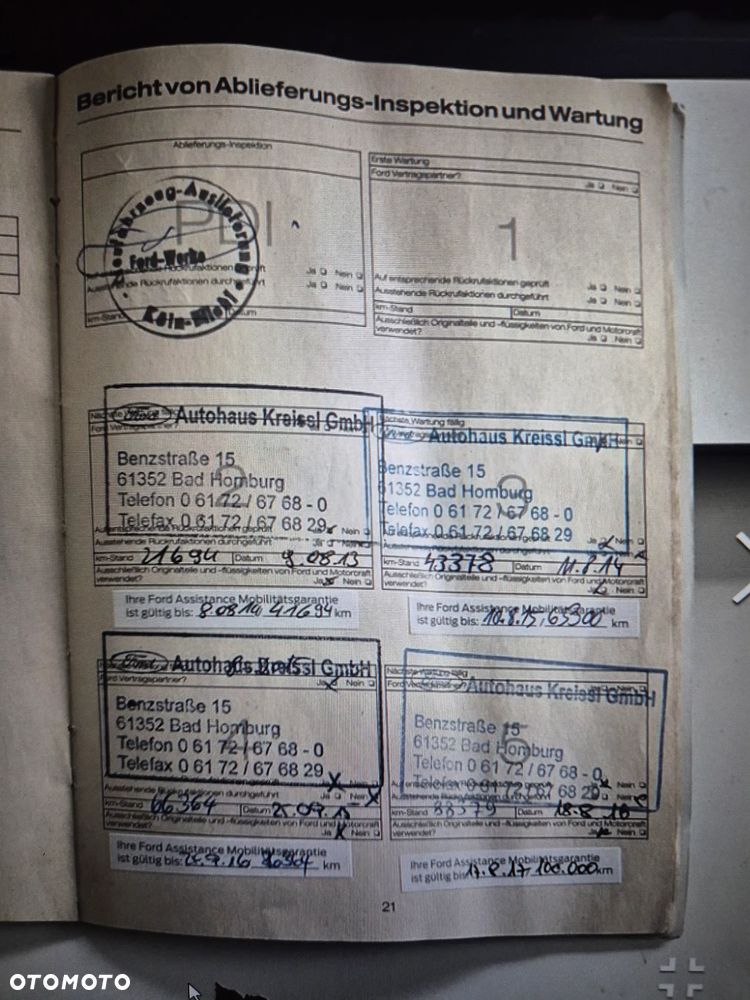 Bericht von Ablieferungs-Inspektion und Wartung
Ablieferungs-Inspektion
PDI
Neufahrzeug-Auslieferung
Ford-Werke
Köln-Niehl
Rückrufaktionen geprüft
Ja Nein
Ausstehende Rückrufaktionen durchgeführt
Ja Nein
km-Stand Datum
Erste Wartung
Ford Vertragspartner?
Ja Nein
1
Auf entsprechende Rückrufaktionen geprüft
Ja Nein
Ausstehende Rückrufaktionen durchgeführt
Ja Nein
km-Stand Datum
Ausschließlich Originalteile und -flüssigkeiten von Ford und Motorcraft
verwendet? Ja Nein
Autohaus Kreissl GmbH
Benzstraße 15
61352 Bad Homburg
Telefon 0 61 72 / 67 68 - 0
Telefax 0 61 72 / 67 68 29
2
Ausstehende Rückrufaktionen durchgeführt Ja Nein
km-Stand 21694 Datum 9.08.13
Ausschließlich Originalteile und -flüssigkeiten von Ford und Motorcraft
verwendet? Ja Nein
Ihre Ford Assistance Mobilitätsgarantie
ist gültig bis: 8.08.14, 41694 km
Nächste Wartung fällig
Autohaus Kreissl GmbH
Benzstraße 15
61352 Bad Homburg
Telefon 0 61 72 / 67 68 - 0
Telefax 0 61 72 / 67 68 29
3
km-Stand 43378 Datum 11.8.14
Ausschließlich Originalteile und -flüssigkeiten von Ford und Motorcraft
verwendet? Ja Nein
Ihre Ford Assistance Mobilitätsgarantie
ist gültig bis: 10.8.15, 63300 km
Autohaus Kreissl GmbH
Ford Vertragspartner? Ja Nein
Benzstraße 15
61352 Bad Homburg
Telefon 0 61 72 / 67 68 - 0
Telefax 0 61 72 / 67 68 29
4
Ausstehende Rückrufaktionen durchgeführt Ja Nein
km-Stand 66364 Datum 25.09.15
Ausschließlich Originalteile und -flüssigkeiten von Ford und Motorcraft
verwendet? Ja Nein
Ihre Ford Assistance Mobilitätsgarantie
ist gültig bis: 86364 km
Nächste Wartung fällig
Autohaus Kreissl GmbH
Benzstraße 15
61352 Bad Homburg
Telefon 0 61 72 / 67 68 - 0
Telefax 0 61 72 / 67 68 29
5
km-Stand 88379 Datum 18.8.16
Ausschließlich Originalteile und -flüssigkeiten von Ford und Motorcraft
verwendet? Ja Nein
Ihre Ford Assistance Mobilitätsgarantie
ist gültig bis: 17.8.17, 100.000 km
21
OTOMOTO